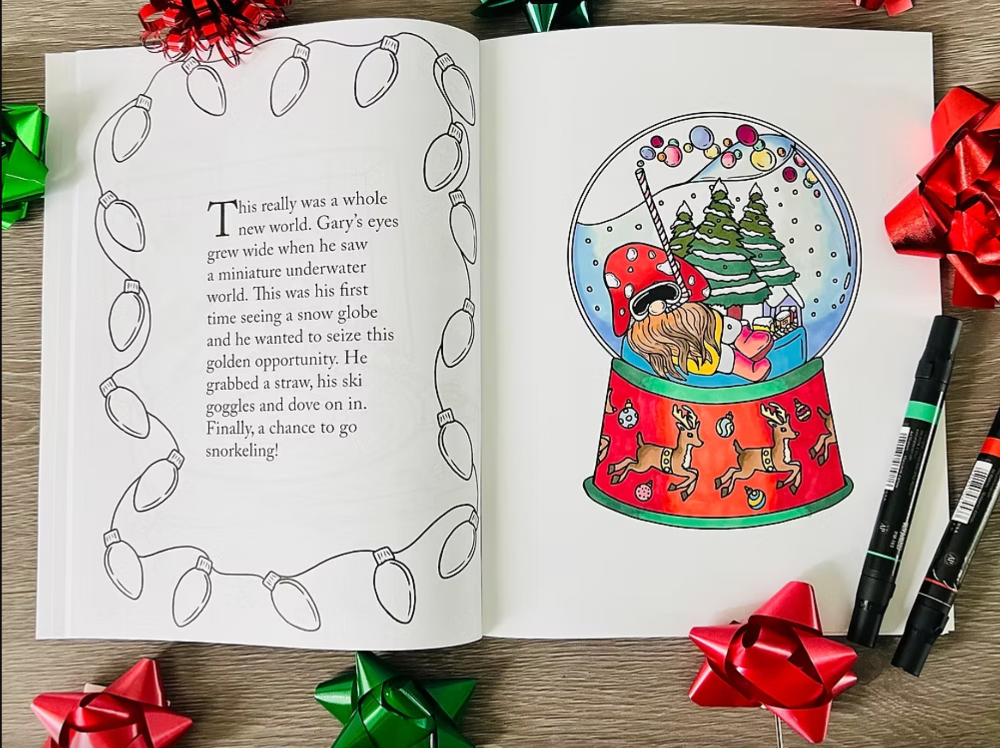 This really was a whole
new world. Gary's eyes
grew wide when he saw
a miniature underwater
world. This was his first
time seeing a snow globe
and he wanted to seize this
golden opportunity. He
grabbed a straw, his ski
goggles and dove on in.
Finally, a chance to go
snorkeling!